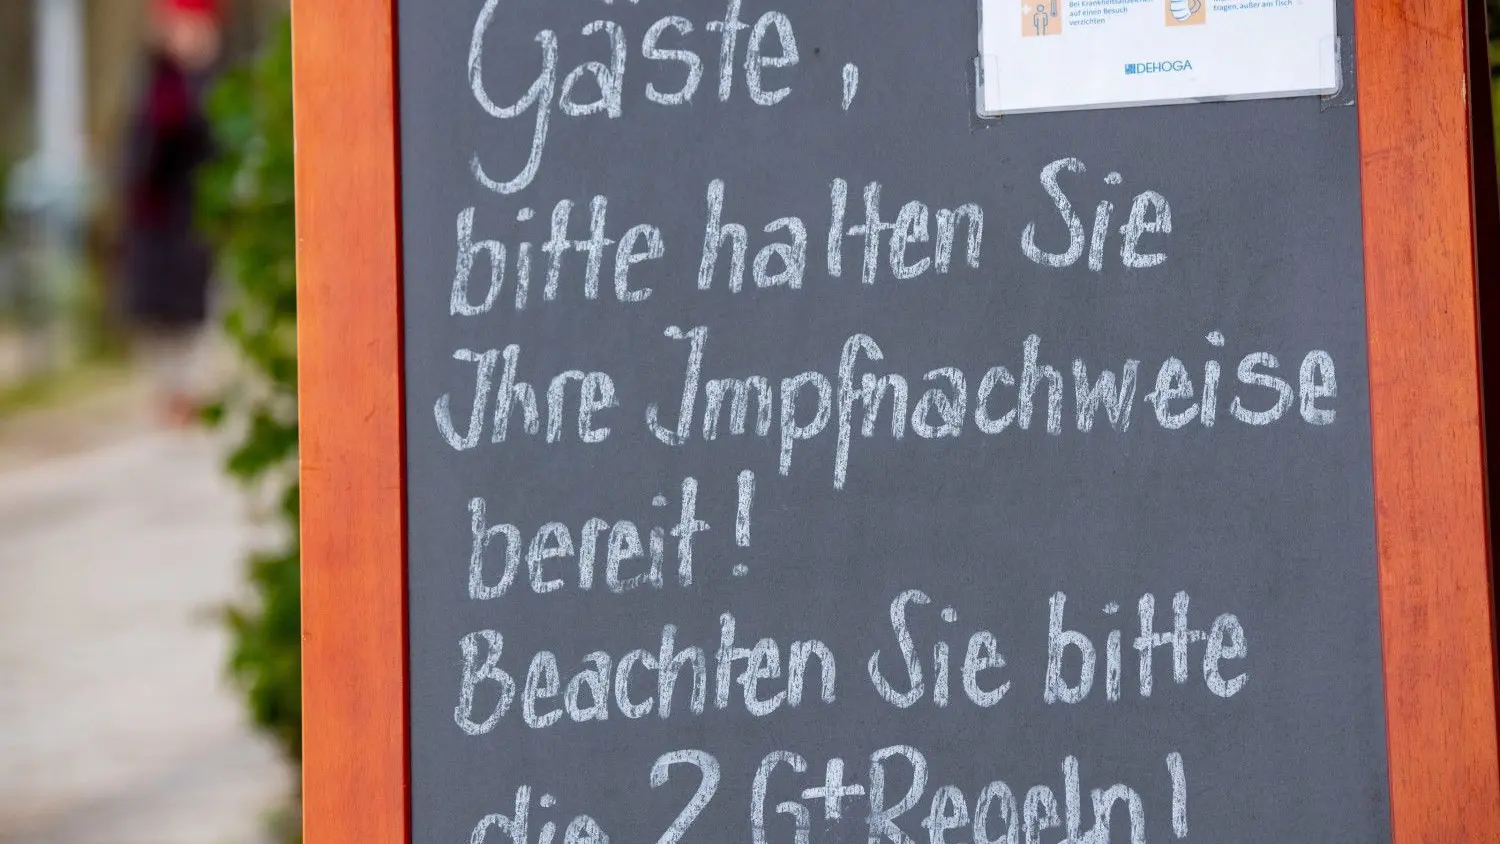 Gäste,
bei Krankheitsanzeichen
auf einen Besuch
verzichten
tragen, außer am Tisch
DEHOGA
bitte halten Sie
Ihre Impfnachweise
bereit!
Beachten Sie bitte
die 2G+Regeln!